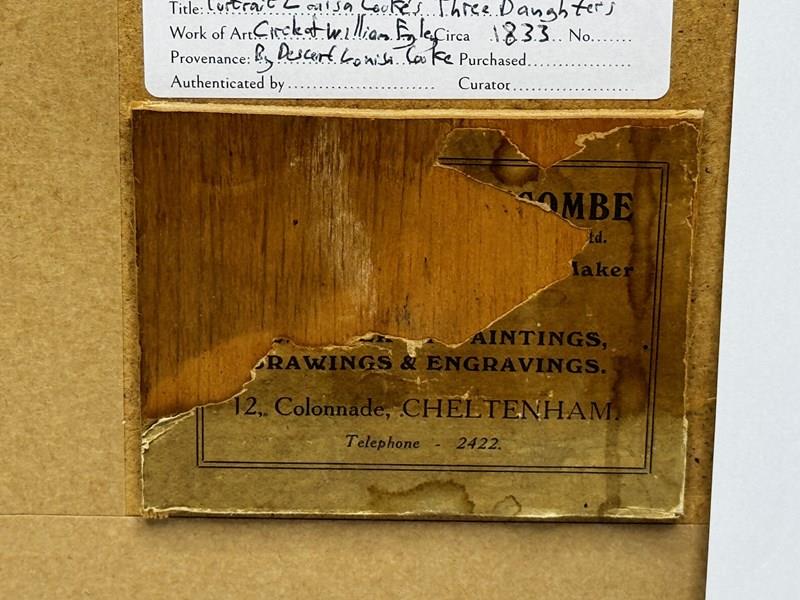 Title: Portrait Louisa Cooke's Three Daughters
Work of Art: Circle of William Egley Circa 1833 No.......
Provenance: By Descent Louisa Cooke Purchased
Authenticated by Curator
COMBE
td.
Maker
AINTINGS,
DRAWINGS & ENGRAVINGS.
12, Colonnade, CHELTENHAM.
Telephone - 2422.